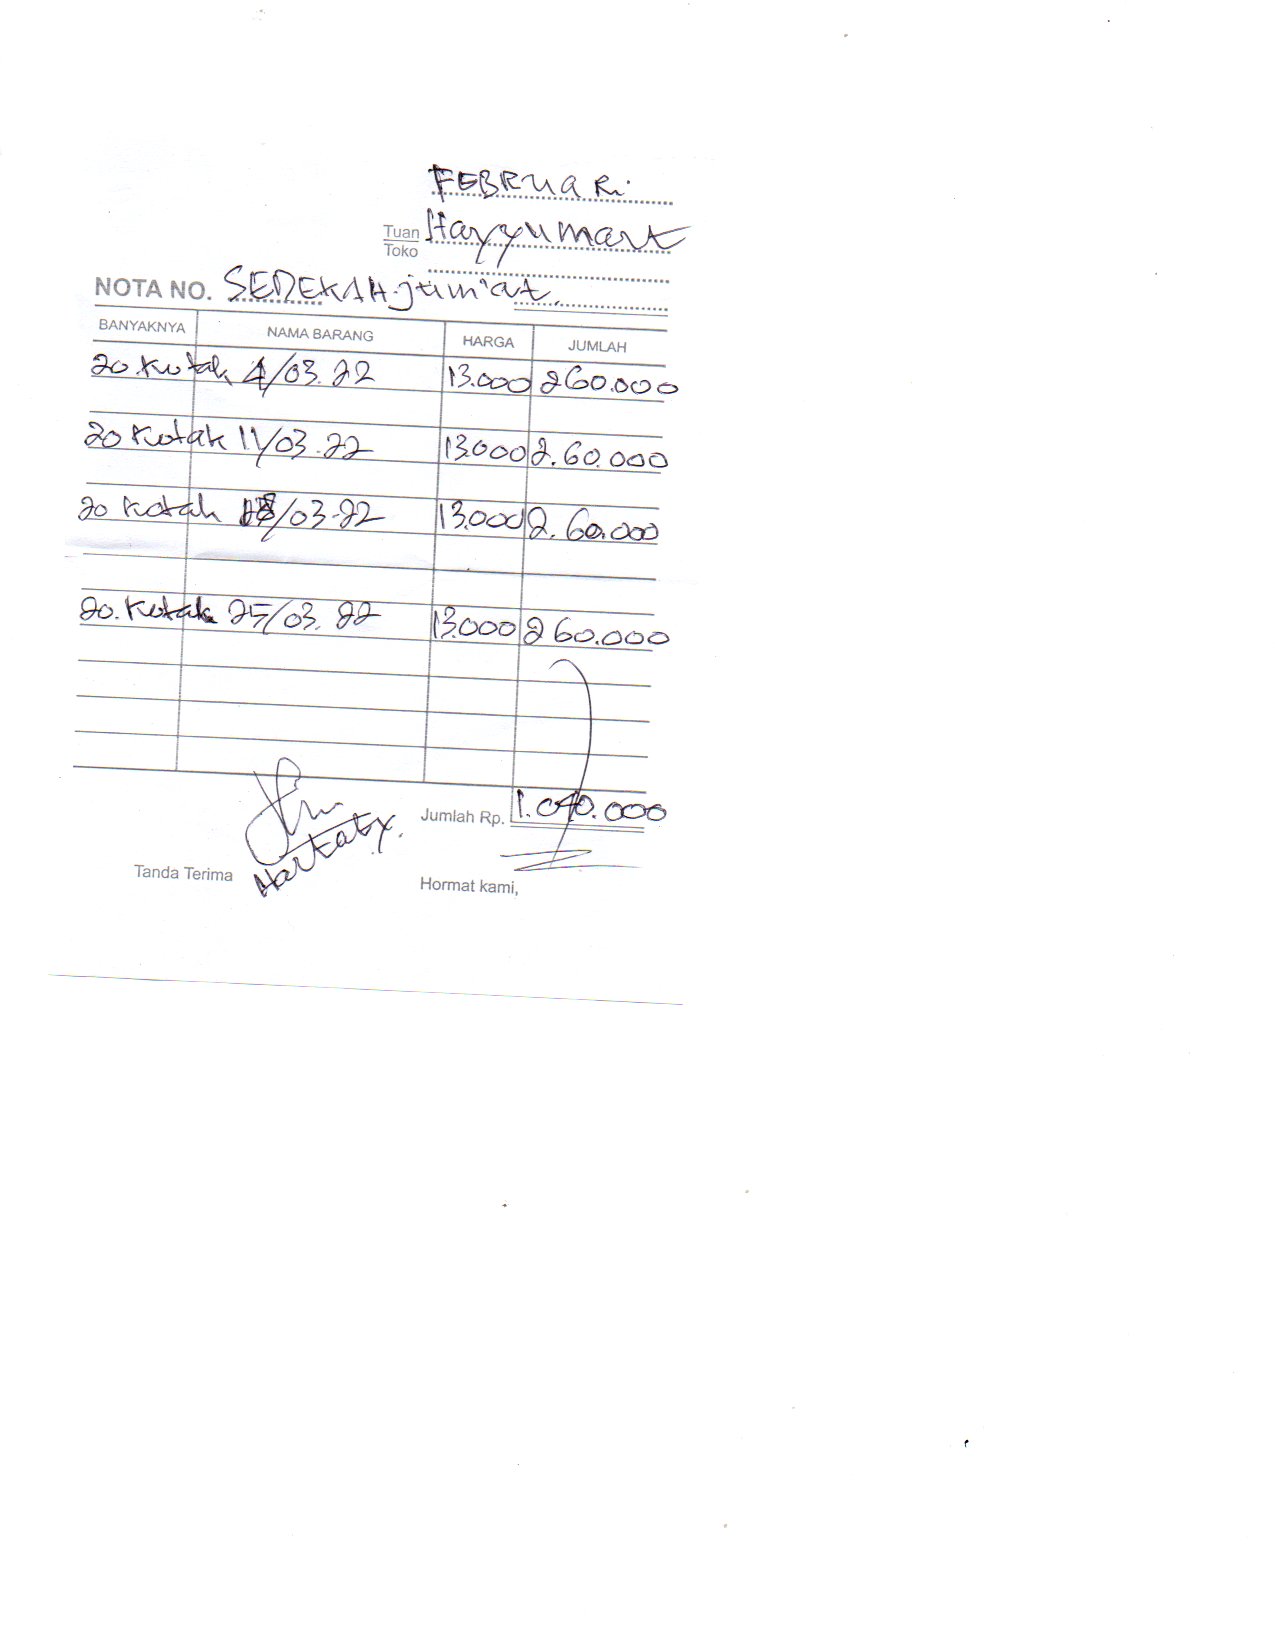 FEBRUARI
Tuan Hayyumart
Toko
NOTA NO. SEDEKAH jum'at.
BANYAKNYA NAMA BARANG HARGA JUMLAH
20 Kotak 4/03.22 13.000 260.000
20 Kotak 11/03.22 13.000 2.60.000
20 Kotak 18/03-22 13.000 2.60.000
20. Kotak 25/03.22 13.000 260.000
Jumlah Rp. 1.040.000
Tanda Terima
Hormat kami,